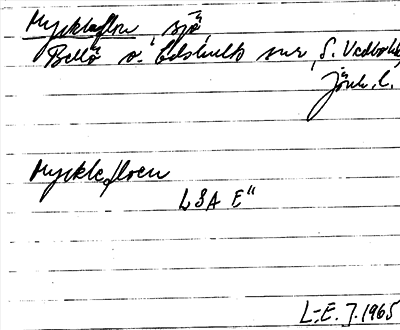 Myckleflon, sjö
Bellö o. Edshults snr, S. Vedbo hd,
Jönk. l.
Mycklefloen
LSA E"
L-E. J. 1965